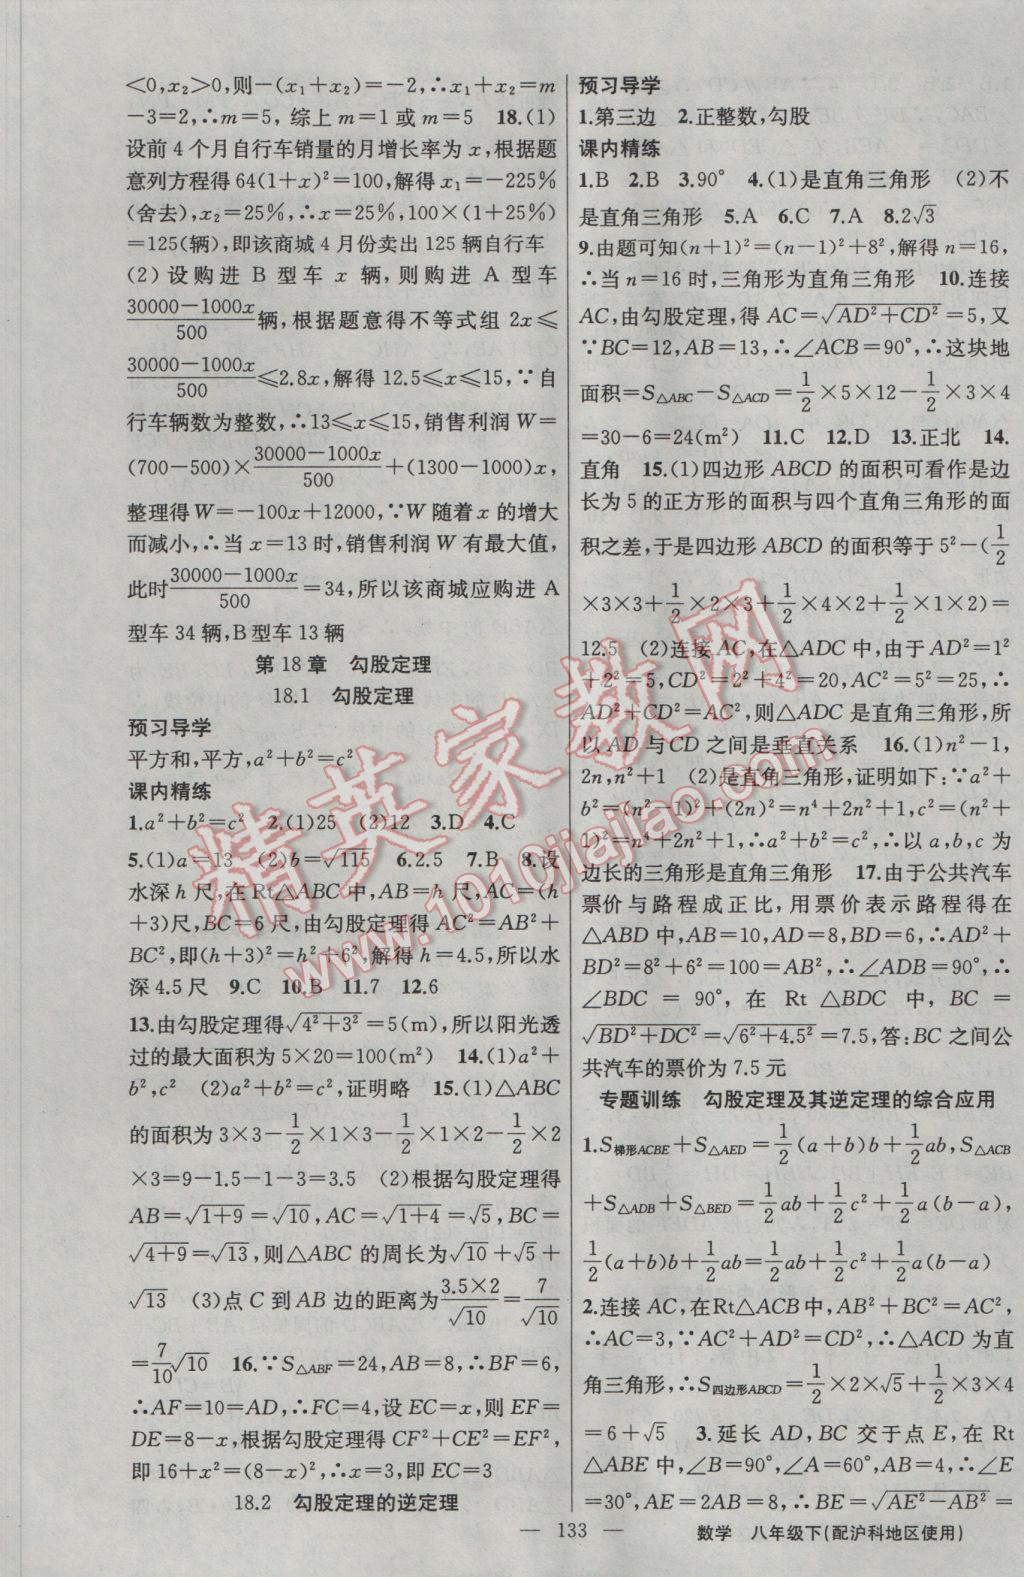 <0,x₂>0,则-(x₁+x₂)=-2,∴x₁+x₂=m
-3=2,∴m=5, 综上 m=1 或 m=5 18.(1)
设前 4 个月自行车销量的月增长率为 x,根据题
意列方程得 64(1+x)²=100,解得 x₁=-225%
(舍去),x₂=25%,∴x=25%,100×(1+25%)
=125(辆),即该商城 4 月份卖出 125 辆自行车
(2) 设购进 B 型车 x 辆,则购进 A 型车
(30000-1000x)/500 辆,根据题意得不等式组 2x≤
(30000-1000x)/500 ≤2.8x,解得 12.5≤x≤15,∵自
行车辆数为整数,∴13≤x≤15,销售利润 W=
(700-500)×(30000-1000x)/500+(1300-1000)x,
整理得 W=-100x+12000,∵W 随着 x 的增大
而减小,∴当 x=13 时,销售利润 W 有最大值,
此时(30000-1000x)/500=34,所以该商城应购进 A
型车 34 辆,B 型车 13 辆
第 18 章 勾股定理
18.1 勾股定理
预习导学
平方和,平方,a²+b²=c²
课内精练
1.a²+b²=c² 2.(1)25 (2)12 3.D 4.C
5.(1)a=13 (2)b=√115 6.2.5 7.B 8.设
水深 h 尺,在 Rt△ABC 中,AB=h 尺,AC=(h
+3)尺,BC=6 尺,由勾股定理得 AC²=AB²+
BC²,即(h+3)²=h²+6²,解得 h=4.5,所以水
深 4.5 尺 9.C 10.B 11.7 12.6
13.由勾股定理得√(4²+3²)=5(m),所以阳光透
过的最大面积为 5×20=100(m²) 14.(1)a²+
b²,c² (2)a²+b²=c²,证明略 15.(1)△ABC
的面积为 3×3-1/2×1×3-1/2×1×2-1/2×2
×3=9-1.5-1-3=3.5 (2)根据勾股定理得
AB=√(1+9)=√10,AC=√(1+4)=√5,BC=
√(4+9)=√13,则△ABC 的周长为√10+√5+
√13 (3)点 C 到 AB 边的距离为(3.5×2)/√10=7/√10
=7/10√10 16.∵S△ABF=24,AB=8,∴BF=6,
∴AF=10=AD,∴FC=4,设 EC=x,则 EF=
DE=8-x,根据勾股定理得 CF²+CE²=EF²,
即 16+x²=(8-x)²,∴x=3,即 EC=3
18.2 勾股定理的逆定理
预习导学
1.第三边 2.正整数,勾股
课内精练
1.B 2.B 3.90° 4.(1)是直角三角形 (2)不
是直角三角形 5.A 6.C 7.A 8.2√3
9.由题可知(n+1)²=(n-1)²+8²,解得 n=16,
∴当 n=16 时,三角形为直角三角形 10.连接
AC,由勾股定理,得 AC=√(AD²+CD²)=5,又
∵BC=12,AB=13,∴∠ACB=90°,∴这块地
面积=S△ABC-S△ACD=1/2×5×12-1/2×3×4
=30-6=24(m²) 11.C 12.D 13.正北 14.
直角 15.(1)四边形 ABCD 的面积可看作是边
长为 5 的正方形的面积与四个直角三角形的面
积之差,于是四边形 ABCD 的面积等于 5²-(1/2
×3×3+1/2×2×3+1/2×4×2+1/2×1×2)=
12.5 (2)连接 AC,在△ADC 中,由于 AD²=1²
+2²=5,CD²=2²+4²=20,AC²=5²=25,∴
AD²+CD²=AC²,则△ADC 是直角三角形,所
以 AD 与 CD 之间是垂直关系 16.(1)n²-1,
2n,n²+1 (2)是直角三角形,证明如下:∵a²+
b²=(n²-1)²+(2n)²=n⁴+2n²+1,c²=(n²+
1)²=n⁴+2n²+1,∴a²+b²=c²,∴以 a,b,c 为
边长的三角形是直角三角形 17.由于公共汽车
票价与路程成正比,用票价表示路程得在
△ABD 中,AB=10,AD=8,BD=6,∴AD²+
BD²=8²+6²=100=AB²,∴∠ADB=90°,∴
∠BDC = 90°, 在 Rt △BDC 中, BC =
√(BD²+DC²)=√(6²+4.5²)=7.5,答:BC 之间公
共汽车的票价为 7.5 元
专题训练 勾股定理及其逆定理的综合应用
1.S梯形ACBE+S△AED=1/2(a+b)b+1/2ab,S△ACB
+S△ADB+S△BED=1/2ab+1/2c²+1/2a(b-a),
1/2(a+b)b+1/2ab=1/2ab+1/2c²+1/2a(b-a)
2.连接 AC,在Rt△ACB 中,AB²+BC²=AC²,
∴AC=3,∵AC²+AD²=CD²,∴△ACD 为直
角三角形,∴S四边形ABCD=1/2×2×√5+1/2×3×4
=6+√5 3.延长 AD,BC 交于点 E,在 Rt
△ABE 中,∠B=90°,∠A=60°,AB=4,∴∠E
=30°,AE=2AB=8,∴BE=√(AE²-AB²)=
— 133 — 数学 八年级下(配沪科地区使用)
精英家教网
www.1010jiajiao.com